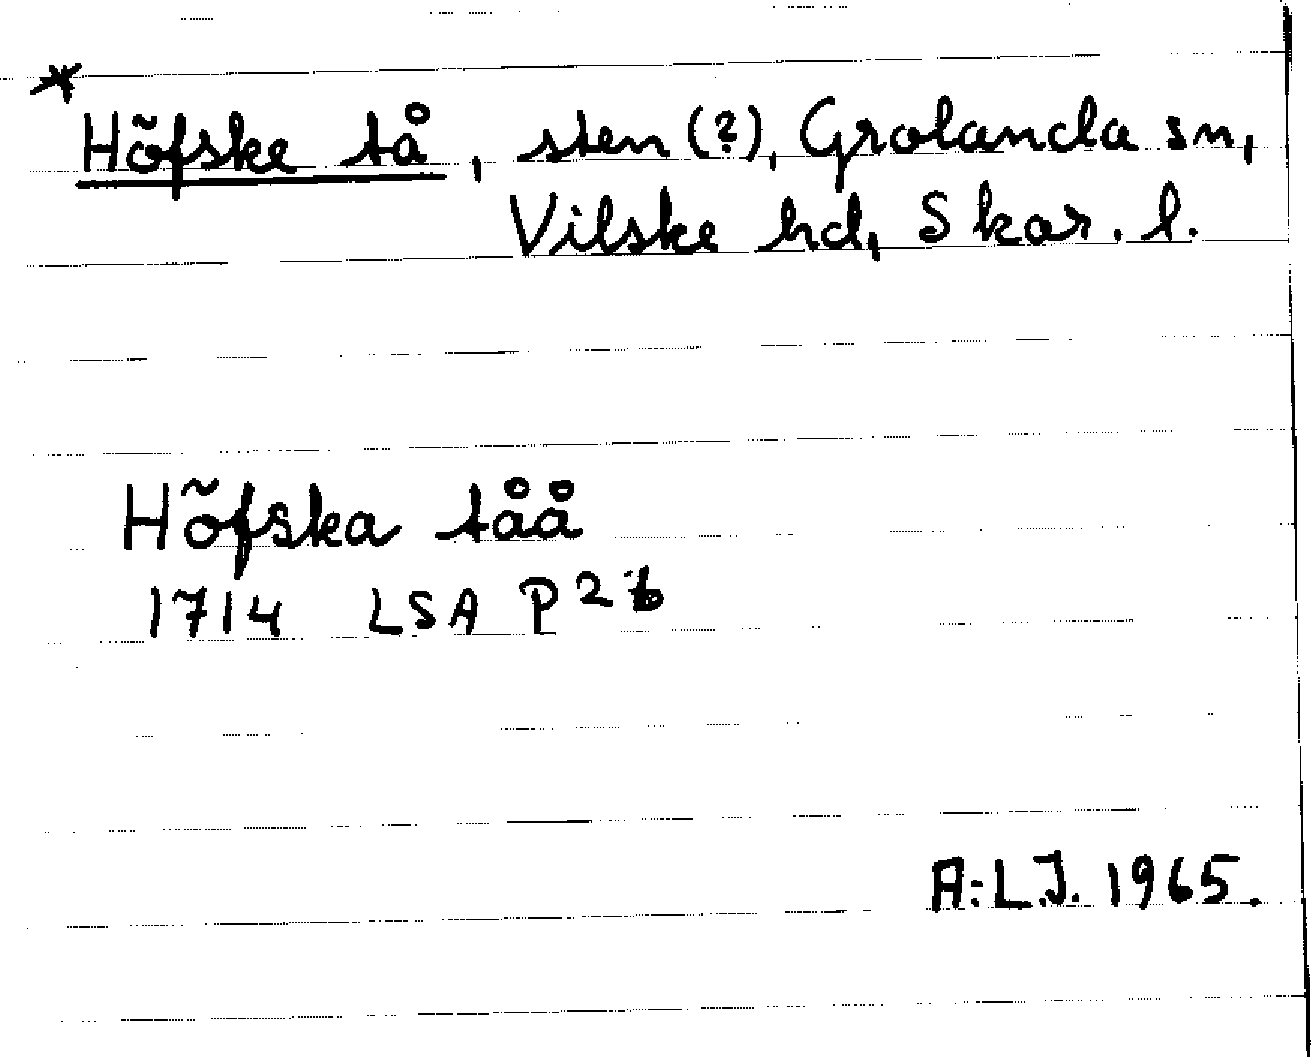 * Hõfske tå, sten (?), Grolanda sn,
Vilske hd, Skar. l.
Hõfska tåå
1714 LSA P 26
A:L.J. 1965.